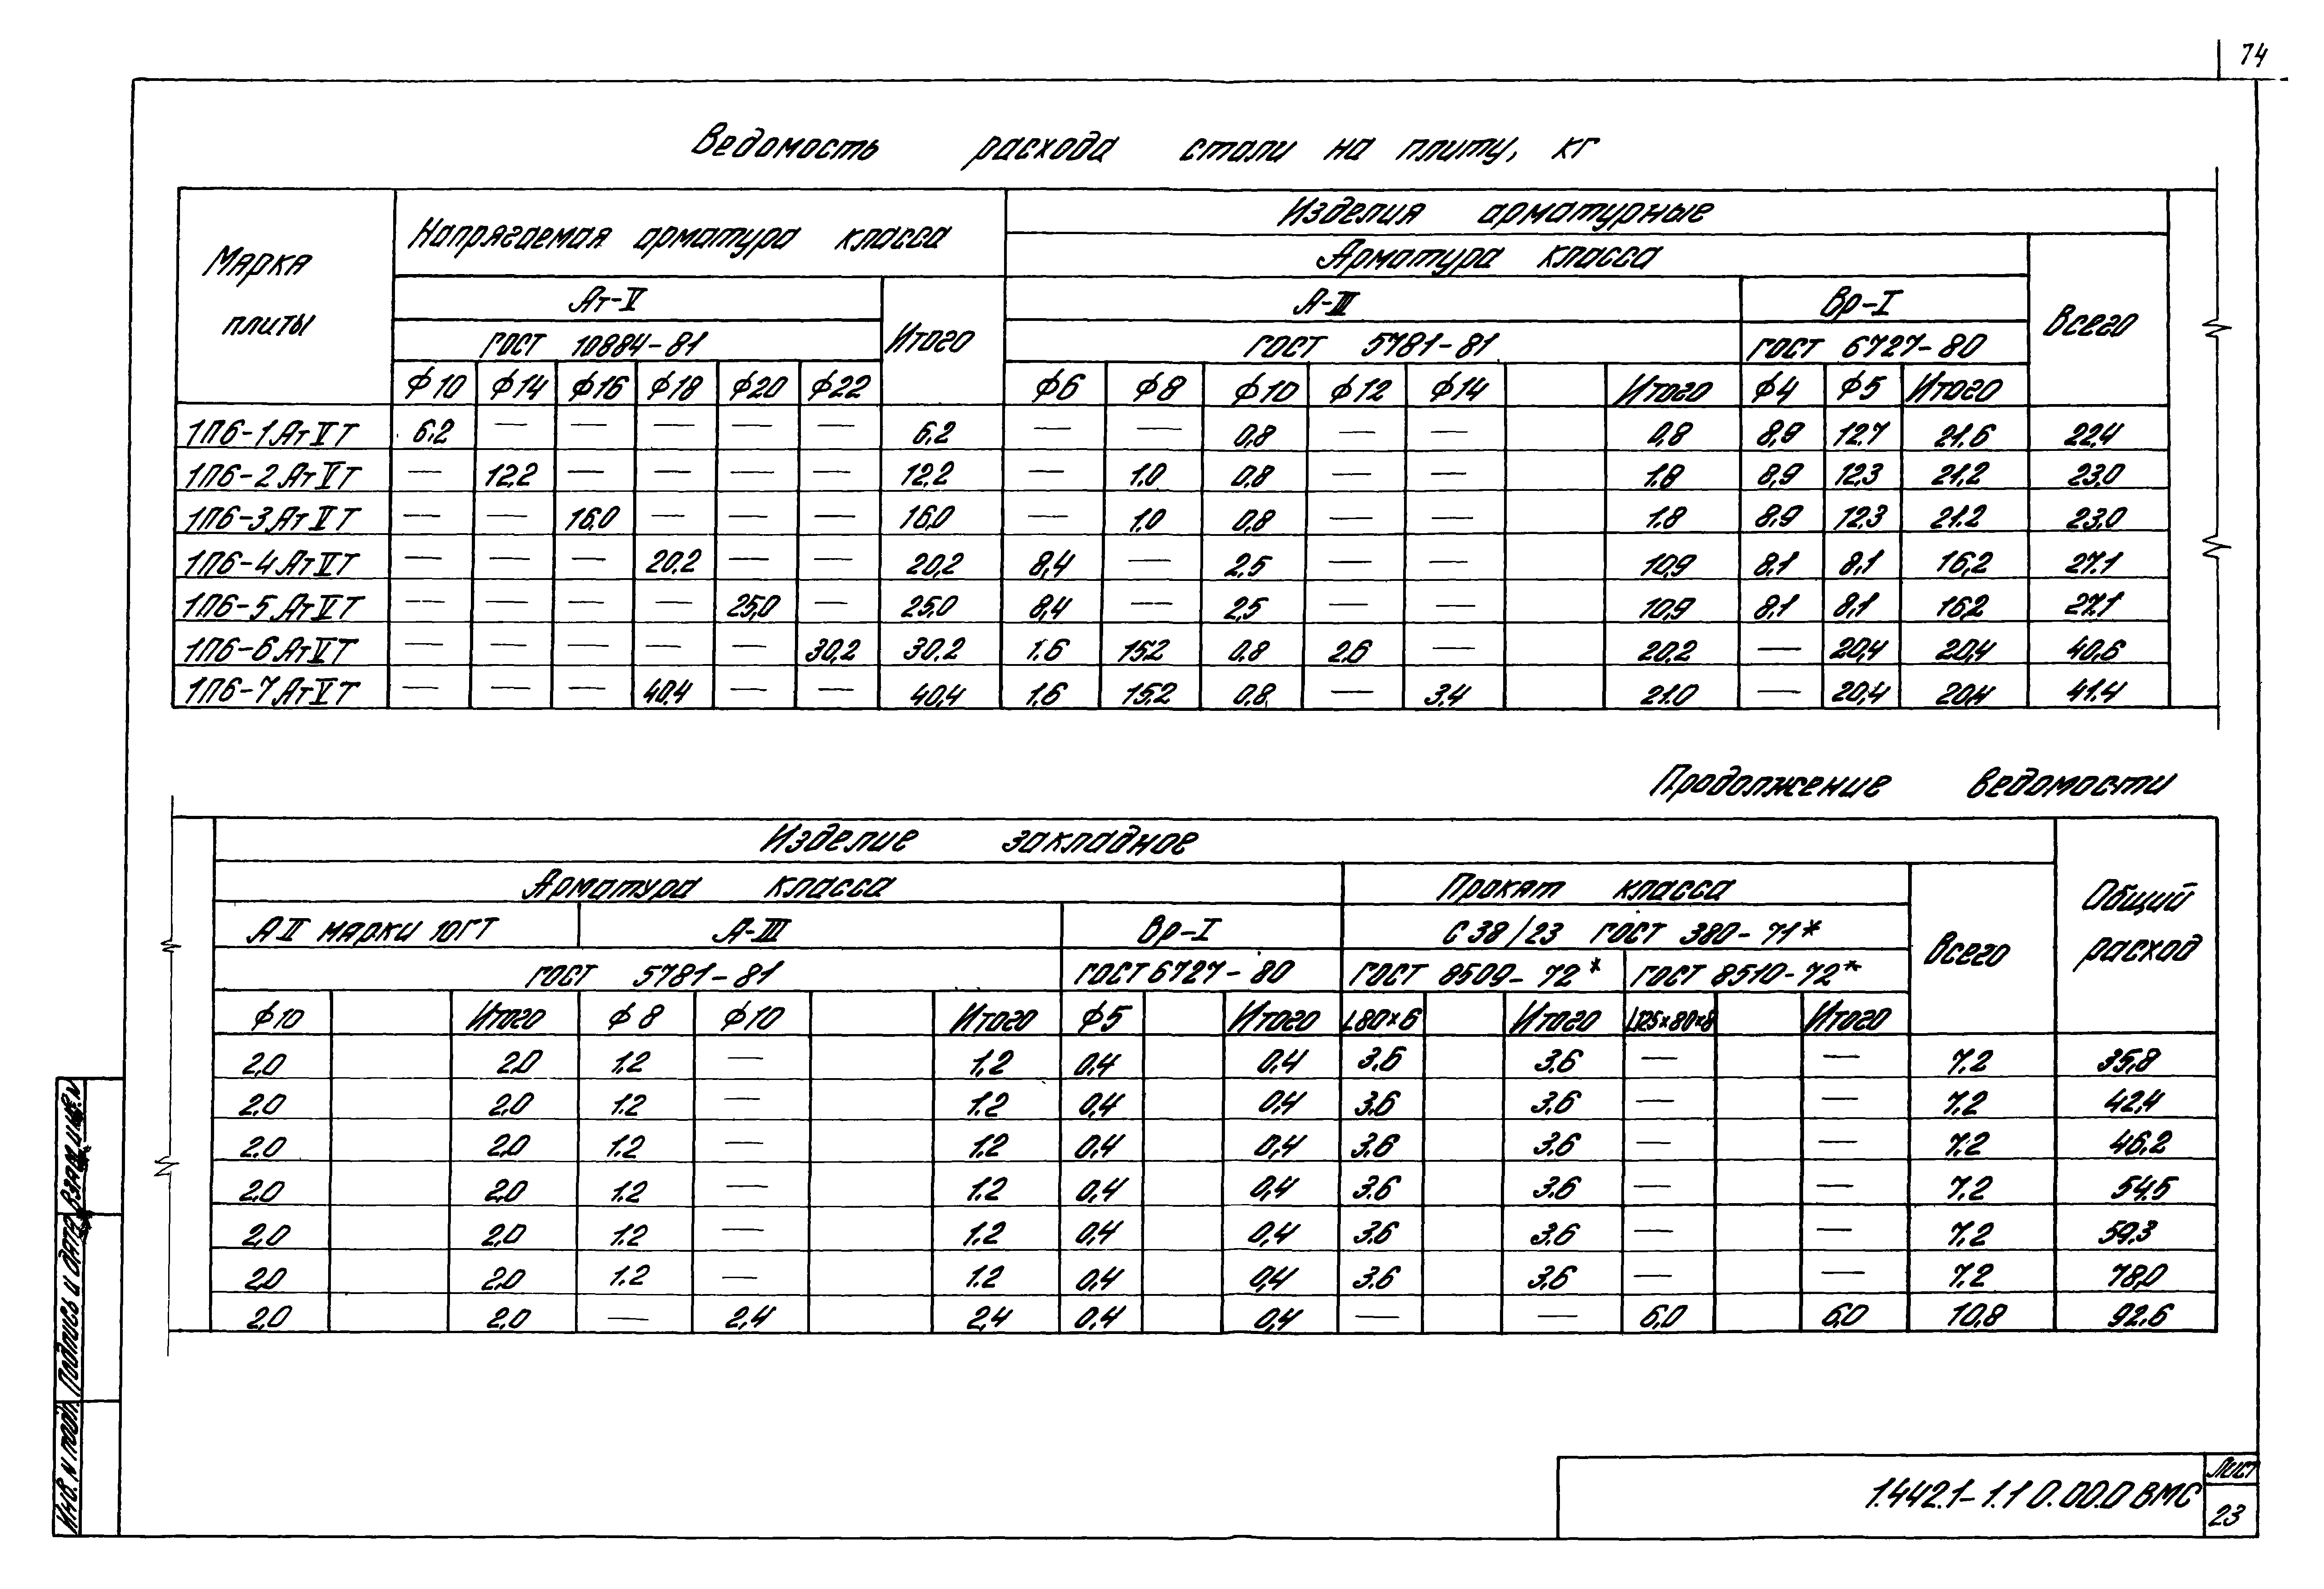 74
Ведомость расхода стали на плиту, кг
Марка плиты
Напрягаемая арматура класса
Изделия арматурные
Арматура класса
Ат-V
Итого
А-III
Вр-I
Всего
ГОСТ 10884-81
ГОСТ 5781-81
ГОСТ 6727-80
ф10 ф14 ф16 ф18 ф20 ф22 ф6 ф8 ф10 ф12 ф14 Итого ф4 ф5 Итого
1П6-1АтVТ 6,2 — — — — — 6,2 — — 0,8 — — 0,8 8,9 12,7 21,6 22,4
1П6-2АтVТ — 12,2 — — — — 12,2 — 1.0 0,8 — — 1.8 8,9 12,3 21,2 23,0
1П6-3АтVТ — — 16,0 — — — 16,0 — 1.0 0,8 — — 1.8 8,9 12,3 21.2 23,0
1П6-4АтVТ — — — 20,2 — — 20,2 8,4 — 2,5 — — 10,9 8,1 8,1 16,2 27.1
1П6-5АтVТ — — — — 25,0 — 25,0 8,4 — 2,5 — — 10,9 8,1 8,1 16,2 27,1
1П6-6АтVТ — — — — — 30,2 30,2 1.6 15,2 0,8 2,6 — 20,2 — 20,4 20,4 40,6
1П6-7АтVТ — — — 40,4 — — 40,4 1.6 15,2 0,8 — 3.4 21.0 — 20,4 20,4 41.4
Продолжение ведомости
Изделие закладное
Общий расход
Арматура класса
Прокат класса
Всего
АII марки 10ГТ
А-III
Вр-I
С38/23 ГОСТ 380-71*
ГОСТ 5781-81
ГОСТ 6727-80
ГОСТ 8509-72*
ГОСТ 8510-72*
ф10 Итого ф8 ф10 Итого ф5 Итого L80×6 Итого L125×80×8 Итого
2,0 2,0 1.2 — 1,2 0,4 0,4 3.6 3.6 — — 7.2 35,8
2,0 2,0 1.2 — 1.2 0,4 0,4 3.6 3.6 — — 7.2 42,4
2.0 2,0 1.2 — 1.2 0,4 0,4 3.6 3.6 — — 7.2 46,2
2.0 2,0 1.2 — 1.2 0,4 0,4 3.6 3.6 — — 7.2 54.5
2,0 2,0 1.2 — 1.2 0,4 0,4 3.6 3.6 — — 7.2 59,3
2,0 2,0 1.2 — 1.2 0,4 0,4 3.6 3.6 — — 7.2 78,0
2,0 2,0 — 2,4 2,4 0,4 0,4 — — 6,0 6,0 10,8 92.6
Инв. N подл.
Подпись и дата
Взам. инв. N
1.442.1-1.1 0.00.0 ВМС
Лист
23